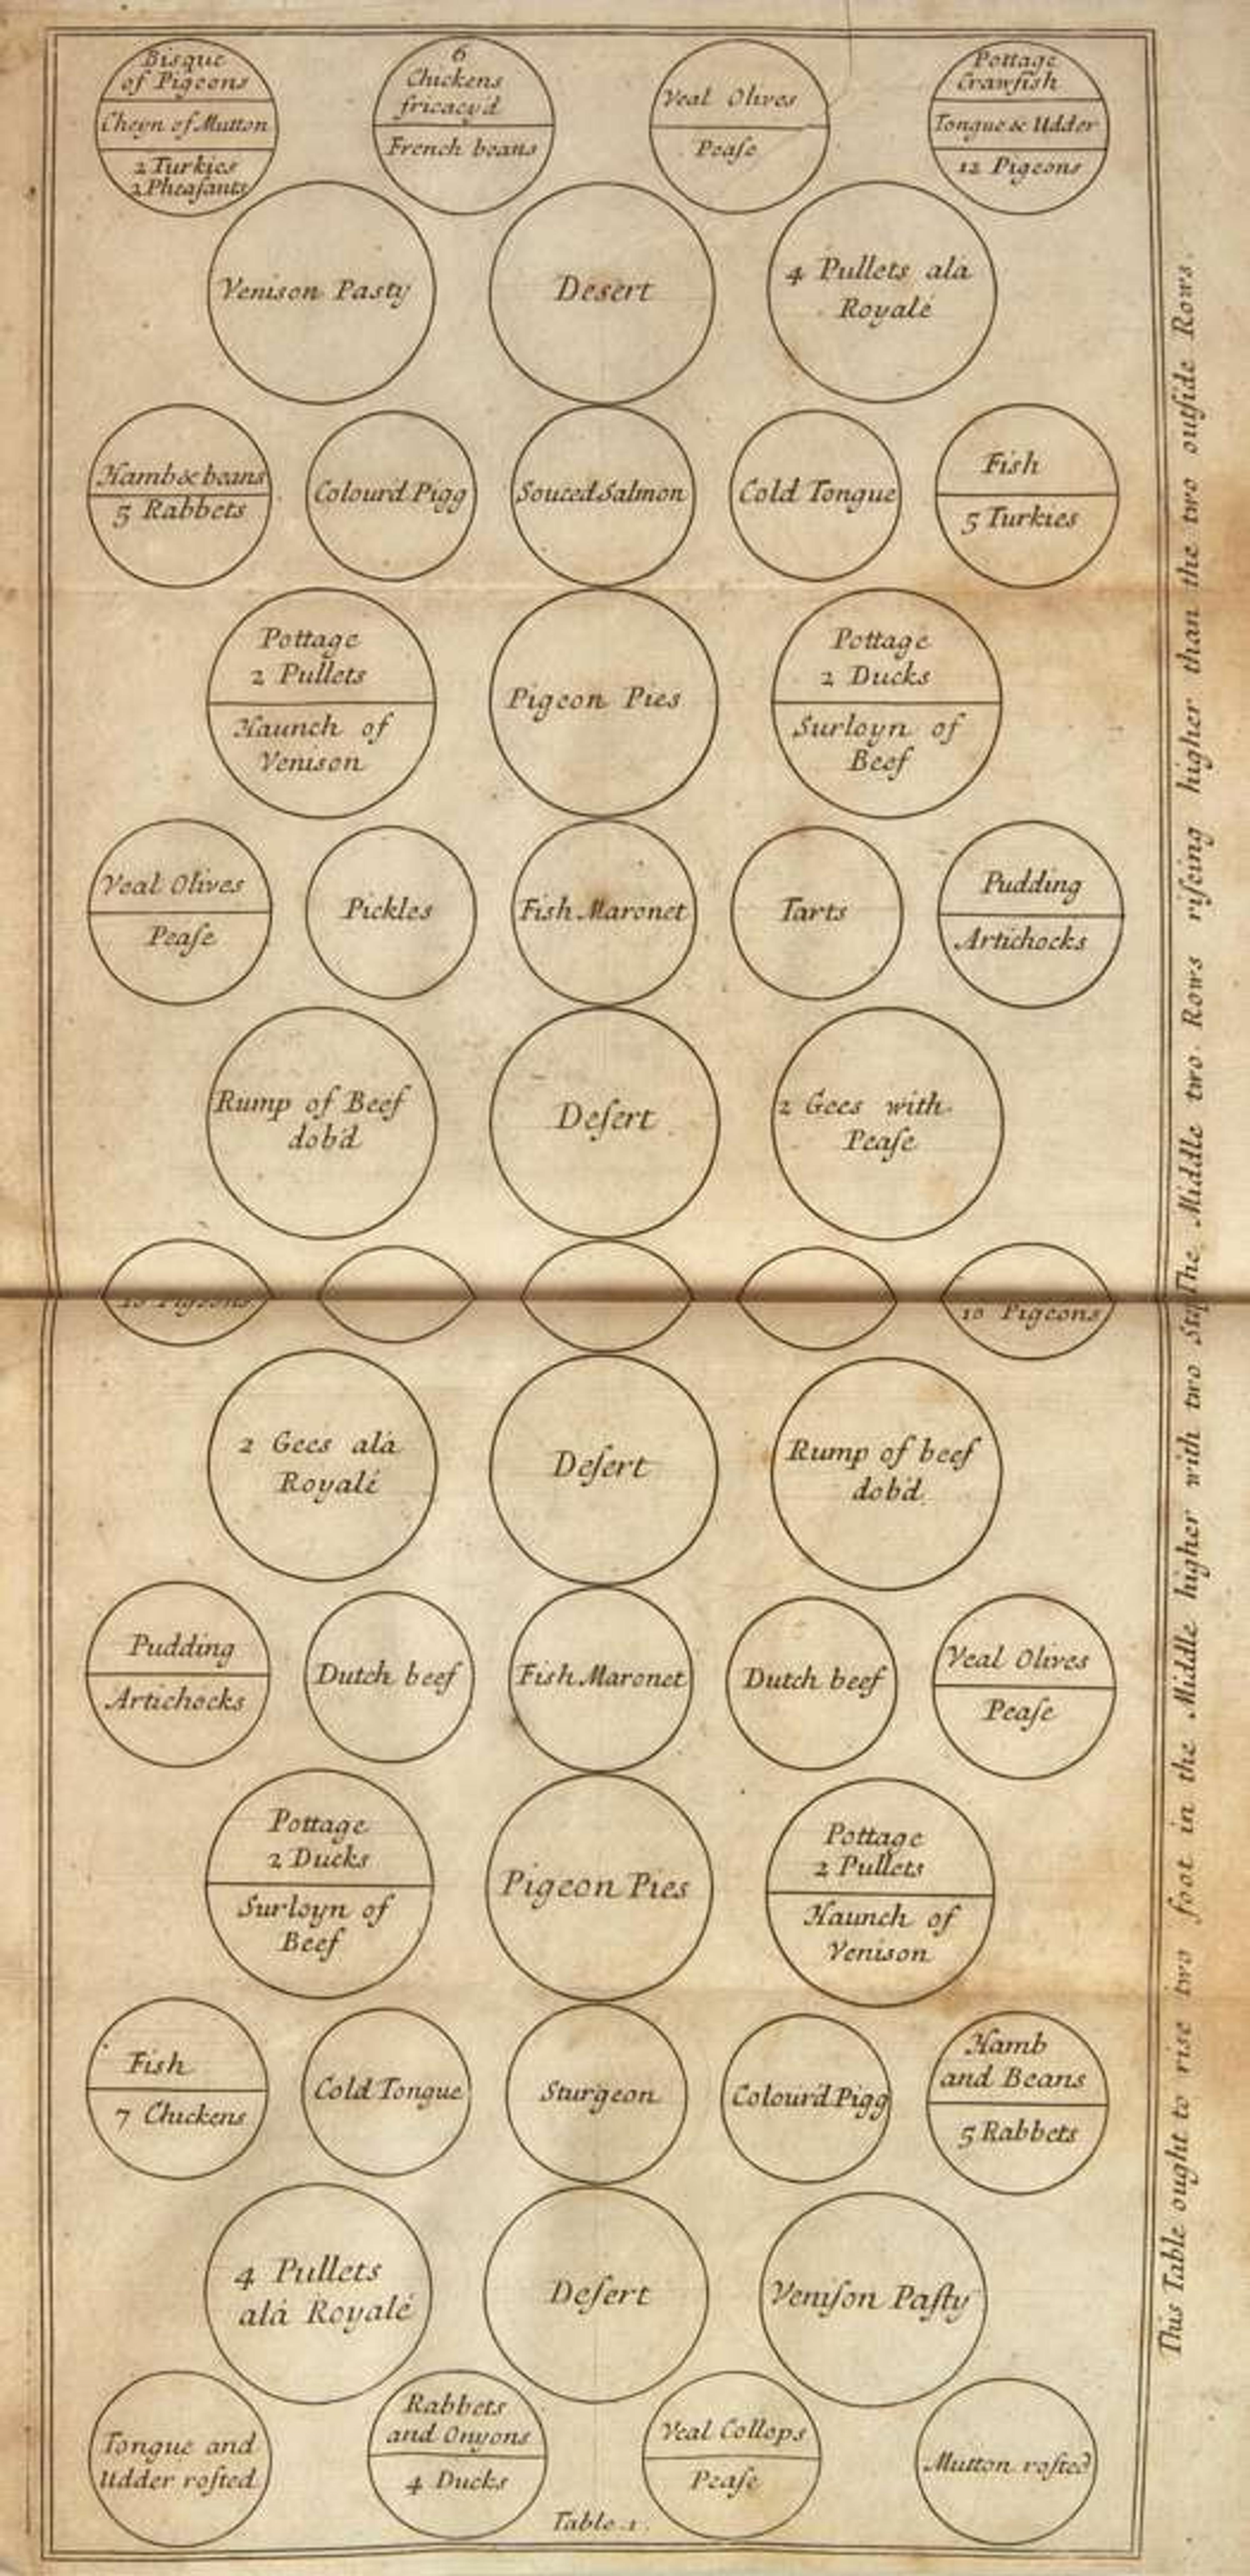 Bisque
of Pigeons
Cheyn of Mutton
2 Turkies
2 Pheaſants
6
Chickens
fricacyd
French beans
Veal Olives
Peaſe
Pottage
Crawfish
Tongue & Udder
12 Pigeons
Venison Pasty
Desert
4 Pullets alá
Royalé
Hamb & beans
5 Rabbets
Colourd Pigg
Souced Salmon
Cold Tongue
Fish
5 Turkies
Pottage
2 Pullets
Haunch of
Venison
Pigeon Pies
Pottage
2 Ducks
Surloyn of
Beef
Veal Olives
Peaſe
Pickles
Fish Maronet
Tarts
Pudding
Artichocks
Rump of Beef
dob'd
Deſert
2 Gees with
Peaſe
10 Pigeons
10 Pigeons
2 Gees alá
Royalé
Deſert
Rump of beef
dob'd
Pudding
Artichocks
Dutch beef
Fish Maronet
Dutch beef
Veal Olives
Peaſe
Pottage
2 Ducks
Surloyn of
Beef
Pigeon Pies
Pottage
2 Pullets
Haunch of
Venison
Fish
7 Chickens
Cold Tongue
Sturgeon
Colourd Pigg
Hamb
and Beans
5 Rabbets
4 Pullets
alá Royalé
Deſert
Veniſon Paſty
Tongue and
Udder roſted
Rabbets
and Onyons
4 Ducks
Veal Collops
Peaſe
Mutton roſted
Table 1.
This Table ought to rise two foot in the Middle higher with two The Middle two Rows riſeing higher than the two outſide Rows.